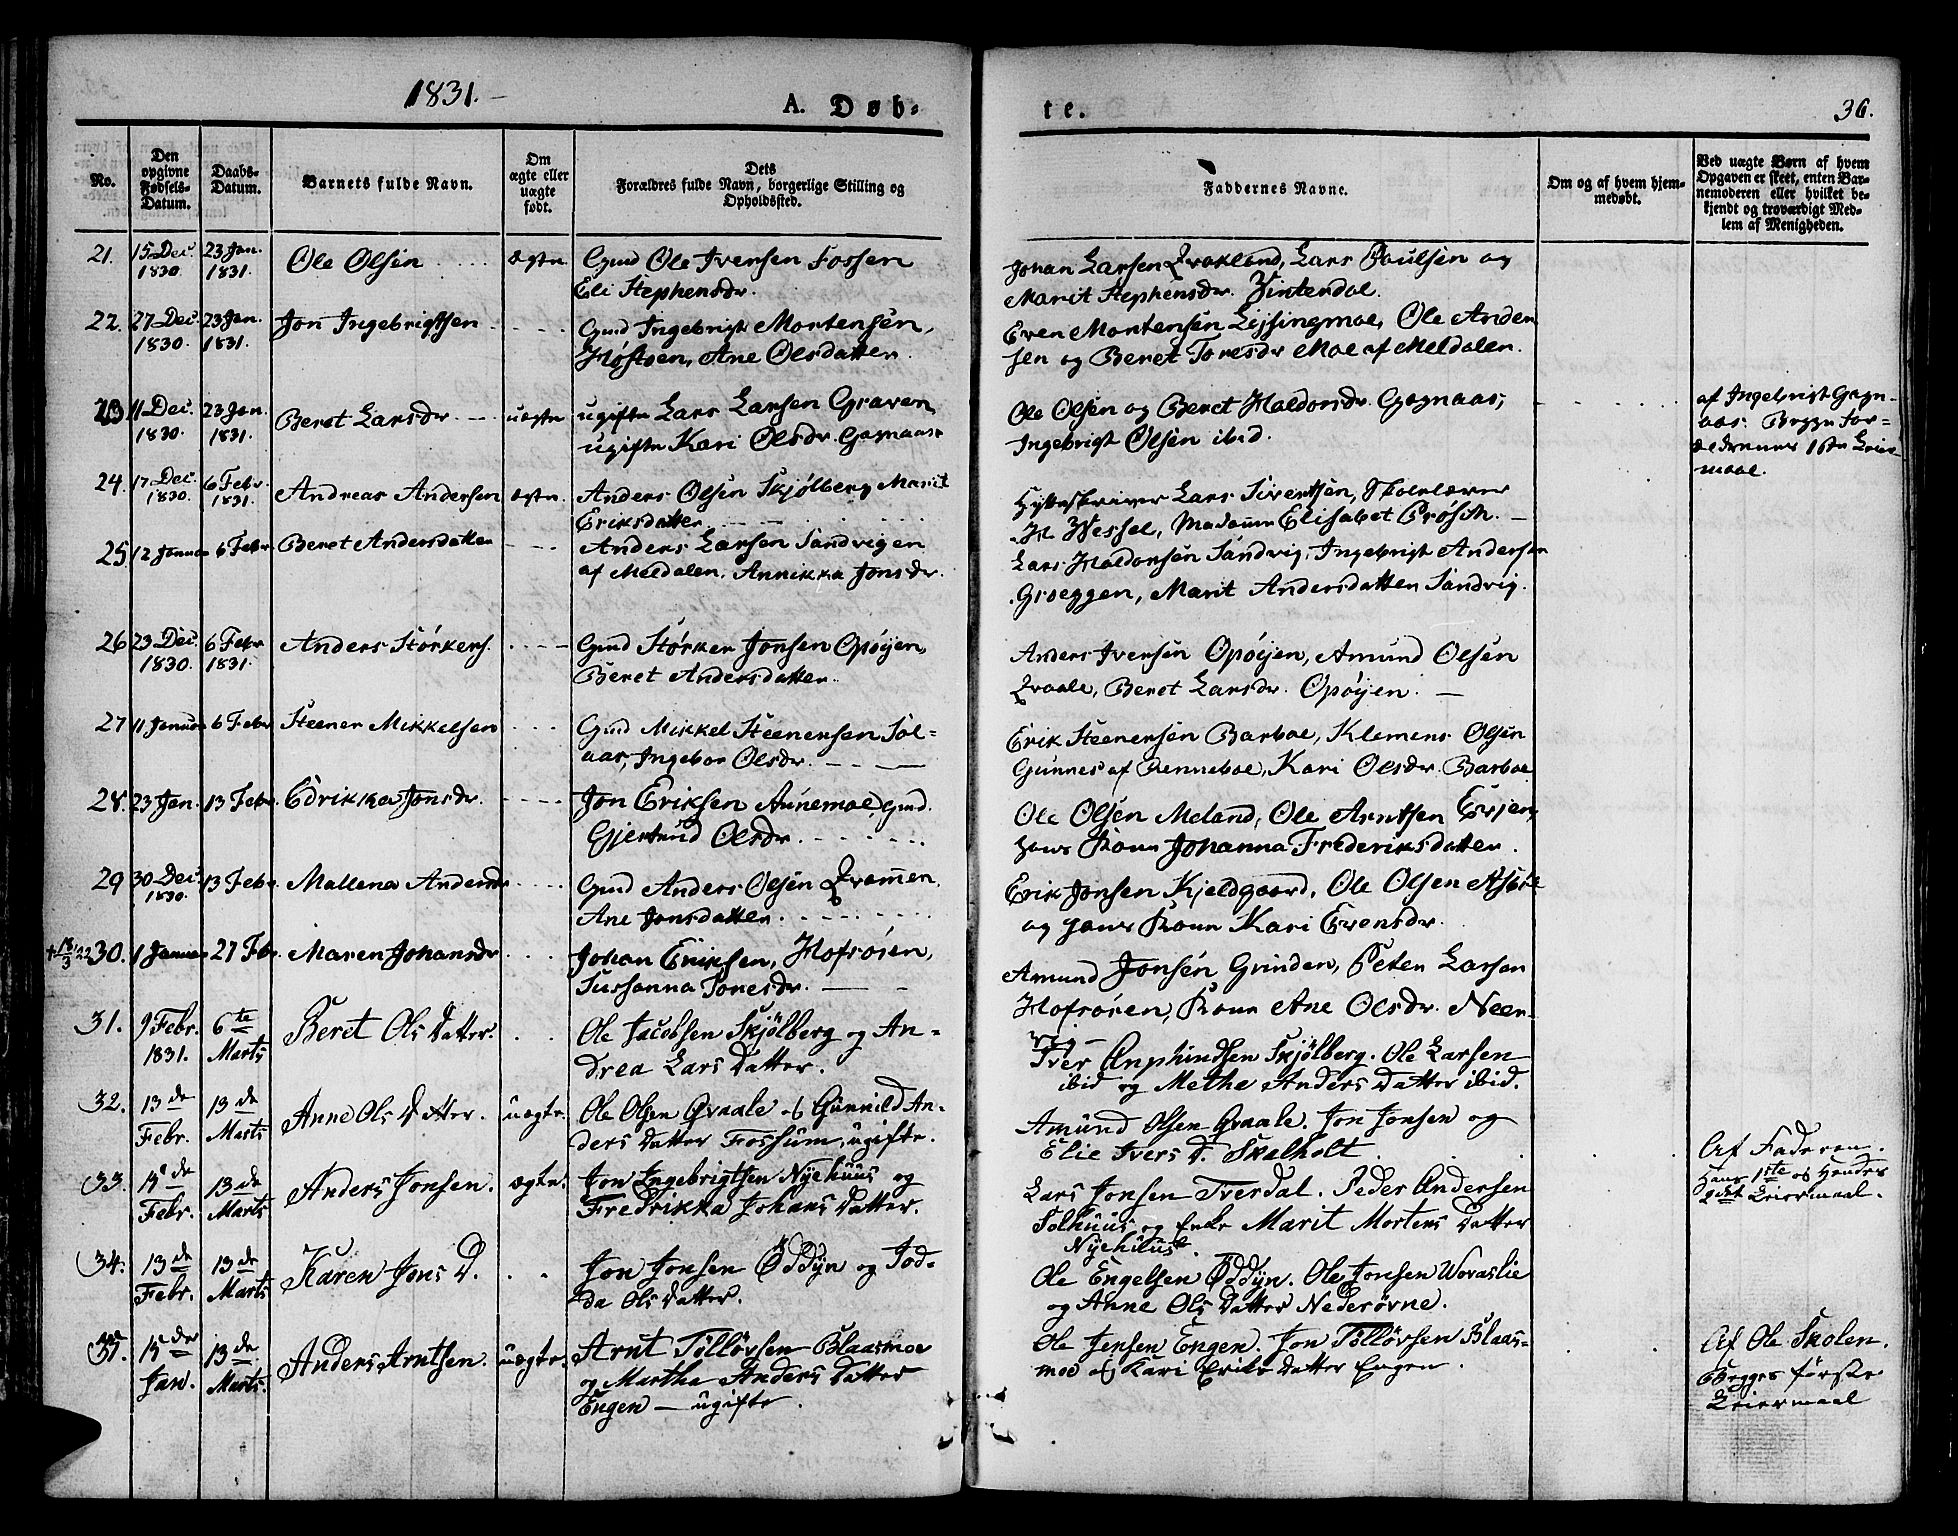 1831.
A. Døb-
te.
36.
No.
Den opgivne Fødsels-Datum.
Daabs-Datum.
Barnets fulde Navn.
Om ægte eller uægte født.
Dets Forældres fulde Navn, borgerlige Stilling og Opholdssted.
Faddernes Navne.
Om og af hvem hjem-medøbt.
Ved uægte Børn af hvem Opgaven er skeet, enten Bar-nemoderen eller hvilket be-kjendt og troværdigt Med-lem af Menigheden.
21. 15 Dec. 1830. 23 Jan. 1831. Ole Olsen ægte Gmd Ole Iversen Fossen
Eli Stephensdr.
Johan Larsen Qvakland, Lars Poulsen og
Marit Stephensdr. Vinterdal.
22. 27 Dec. 1830. 23 Jan. 1831. Jon Ingebrigtsen Gmd Ingebrigt Mortensen,
Høstoen, Ane Olsdatter.
Even Mortensen Leisingmoe, Ole Ander
sen og Beret Toresdr Moe af Meldalen.
23 11 Dec. 1830. 23 Jan. 1831. Beret Larsdr uægte ugifte Lars Larsen Graven
ugifte Kari Olsdr. Gagnaas
Ole Olsen og Beret Haldorsdr. Gagnaas,
Ingebrigt Olsen ibid.
af Ingebrigt Gagn-
aas. Begge For-
ældrenes 1ste Leier
maal.
24. 17 Dec. 1830. 6 Febr. 1831. Andreas Andersen ægte. Anders Olsen Skjølberg Marit
Eriksdatter
Hytteskriver Lars Sivertsen, Skolelærer
H. Wessel, Madamme Elisabet Brøske.
25. 12 Januar 6 Febr Beret Andersdatter Anders Larsen Sandvigen
af Meldalen. Annikka Jonsdr.
Lars Haldorsen Sandvig, Ingebrigt Andersen
Groeggen, Marit Andersdatter Sandvig.
26 23 Dec. 1830. 6 Febr 1831. Anders Størkers. Gmd Størker Jonsen Opøyen,
Beret Andersdatter.
Anders Iversen Opøyen, Amund Olsen
Qvaale, Beret Larsdr. Opøyen.
27 11 Januar 6 Febr Steener Mikkelsen Gmd Mikkel Steenersen Sol-
aas, Ingebor Olsdr.
Erik Steenersen Barboe, Klemens Olsen
Gunnes af Renneboe, Kari Olsdr. Barboe
28. 23 Jan. 13 Febr. Edrikka Jonsdr. Jon Eriksen Aunemoe, Gmd.
Gjertrud Olsdr.
Ole Olsen Meland, Ole Arntsen Evjen,
hans Kone Johanna Frederiksdatter.
29 30 Dec. 1830. 13 Febr. Mallena Andersdr Gmd Anders Olsen Qvammen.
Ane Jonsdatter.
Erik Jonsen Kjeldgaard, Ole Olsen Asbøe
og hans Kone Kari Evensdr.
30. 1 Januar 27 Fbr. Maren Johansdr Johan Eriksen, Hofrøien,
Sussanna Tonesdr.
Amund Jonsen Grinden, Peter Larsen
Hofrøren, Kone Ane Olsdr. Neer-
vig
31. 9 Febr. 1831. 6te Marts Beret Ols Datter. Ole Jacobsen Skjølberg og An-
drea Lars Datter.
Iver Anphindsen Skjølberg. Ole Larsen
ibid og Methe Anders Datter ibid.
32. 13de Febr. 13de Marts Anne Ols Datter. uægte. Ole Olsen Qvaale og Gunnild An-
ders Datter Fossum, ugifte.
Amund Olsen Qvaale. Jon Jonsen og
Elie Ivers D. Skalholt.
Af Faderen.
Hans 1ste og Hendes
2det Leiermaal.
33. 15de Febr. 13de Marts Anders Jonsen. ægte. Jon Ingebrigtsen Nyehuus og
Fredrikka Johans Datter.
Lars Jonsen Tverdal. Peder Andersen
Solhuus og Enke Marit Mortens Datter
Nyehuus.
34. 13de Febr. 13de Marts Karen Jons D. Jon Jonsen Øddyn og Jod-
da Ols Datter.
Ole Engelsen Øddyn. Ole Jonsen Woraslie
og Anne Ols Datter Nederørne.
35. 15de Jan. 13de Marts. Anders Arntsen. uægte. Arnt Tølløvsen Blaasmoe
og Martha Anders Datter
Engen — ugifte.
Ole Jensen Engen. Jon Tølløvsen Blaas-
moe og Kari Eriks Datter Engen.
Af Ole Skolen.
Begges første
Leiermaal